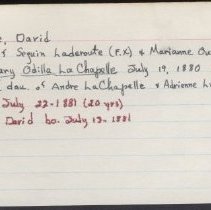 , David
f Seguin Laderoute (F.X) & Marianne
ary Odilla LaChapelle July 19, 1880
dau. of Andre LaChapelle & Adrienne
July 22-1881 (20 yrs)
David bo. July 13-1881